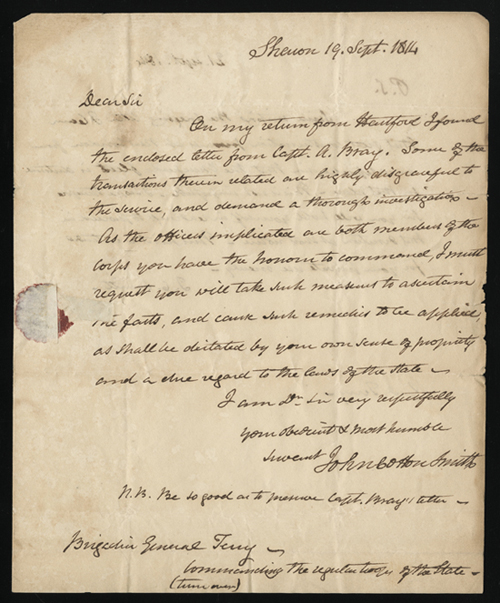 Sharon 19. Sept. 1814
Dear Sir
On my return from Hartford I found
the enclosed letter from Capt. A. Bray. Some of the
transactions therein related are highly disgraceful to
the service, and demand a thorough investigation –
As the officers implicated are both members of the
corps you have the honour to command, I must
request you will take such measures to ascertain
the facts, and cause such remedies to be applied,
as shall be dictated by your own sense of propriety
and a due regard to the laws of the State –
I am Dr Sir very respectfully
your obedient & most humble
servant John Cotton Smith
N.B. Be so good as to preserve Capt. Bray's letter –
Brigadier General Terry –
Commanding the regular of the State –
(turn over)